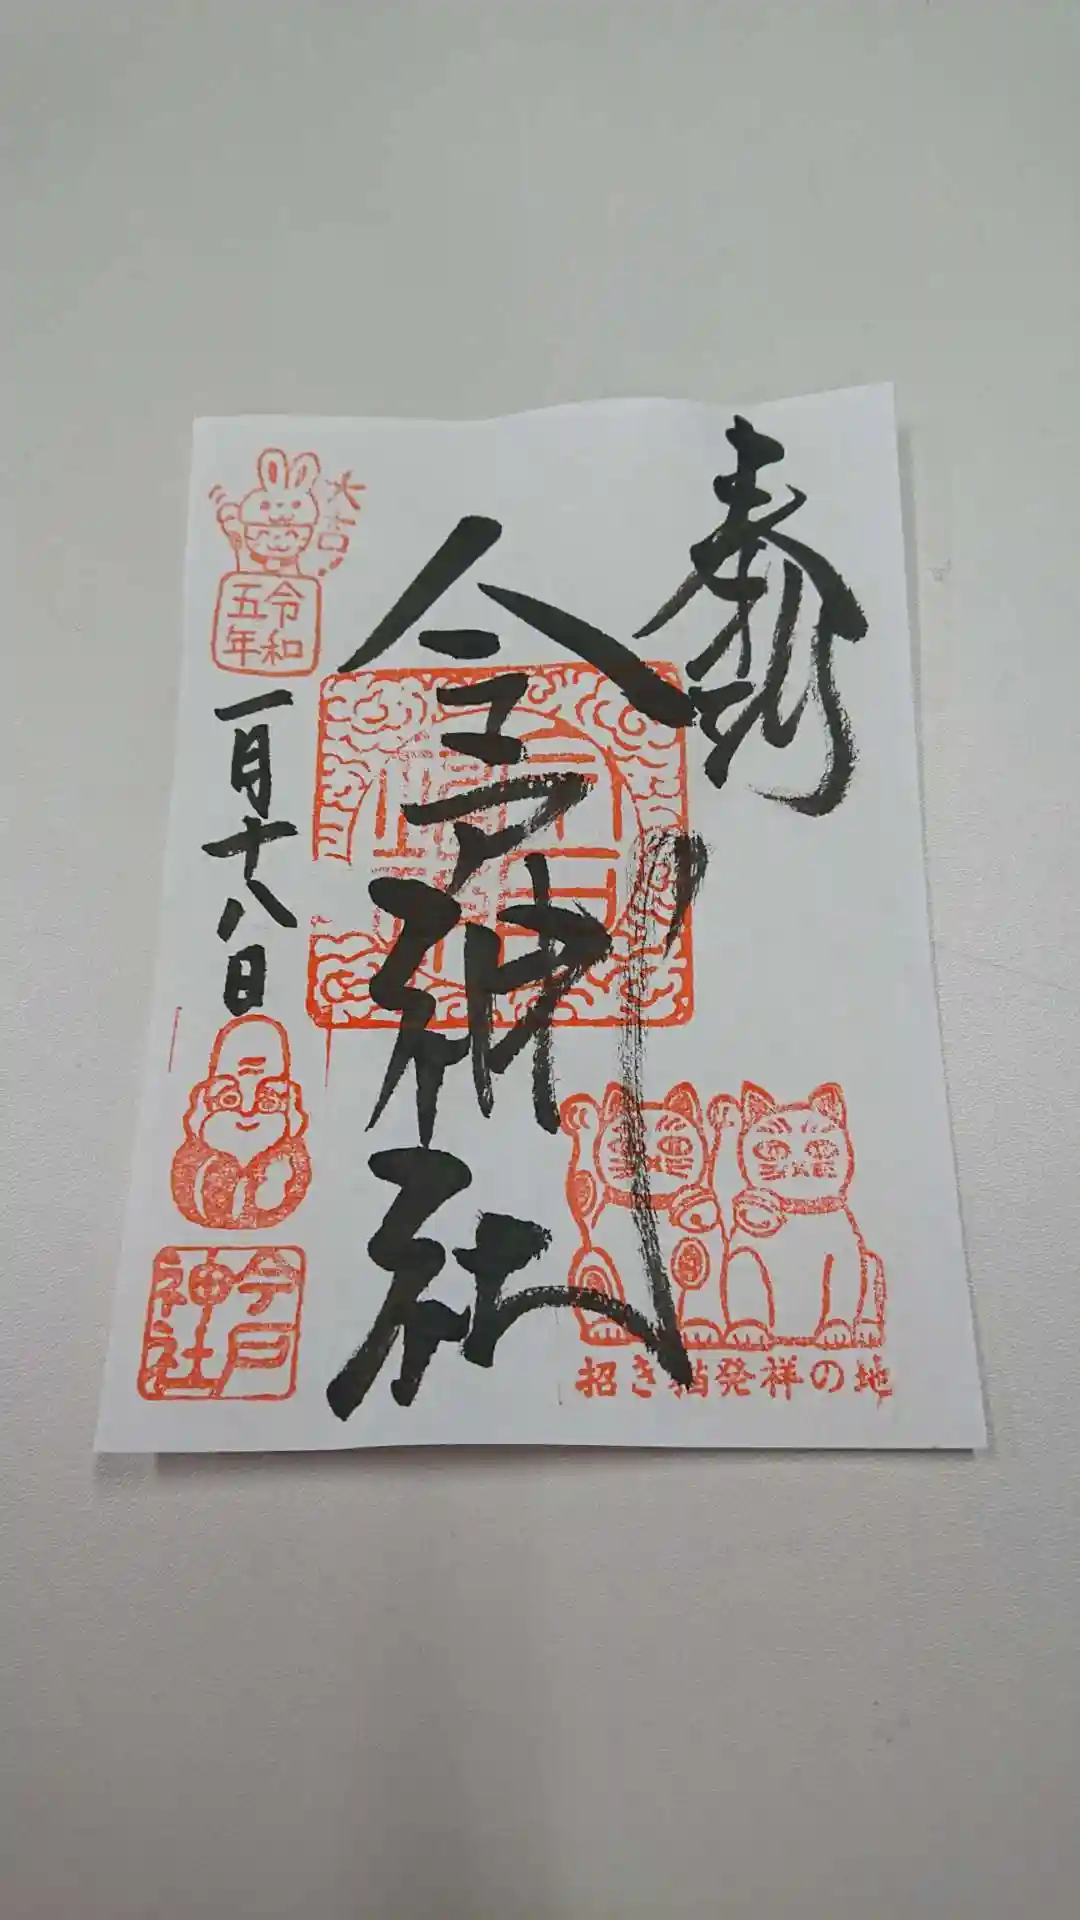 奉拝
今戸神社
大吉
令和
五年
一月十八日
今戸
神社
招き猫発祥の地